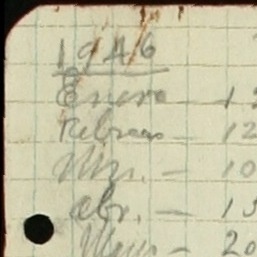 1946
Enero — 1
Febrero — 12
Mzo. — 10
Abr. — 1
Mayo — 20